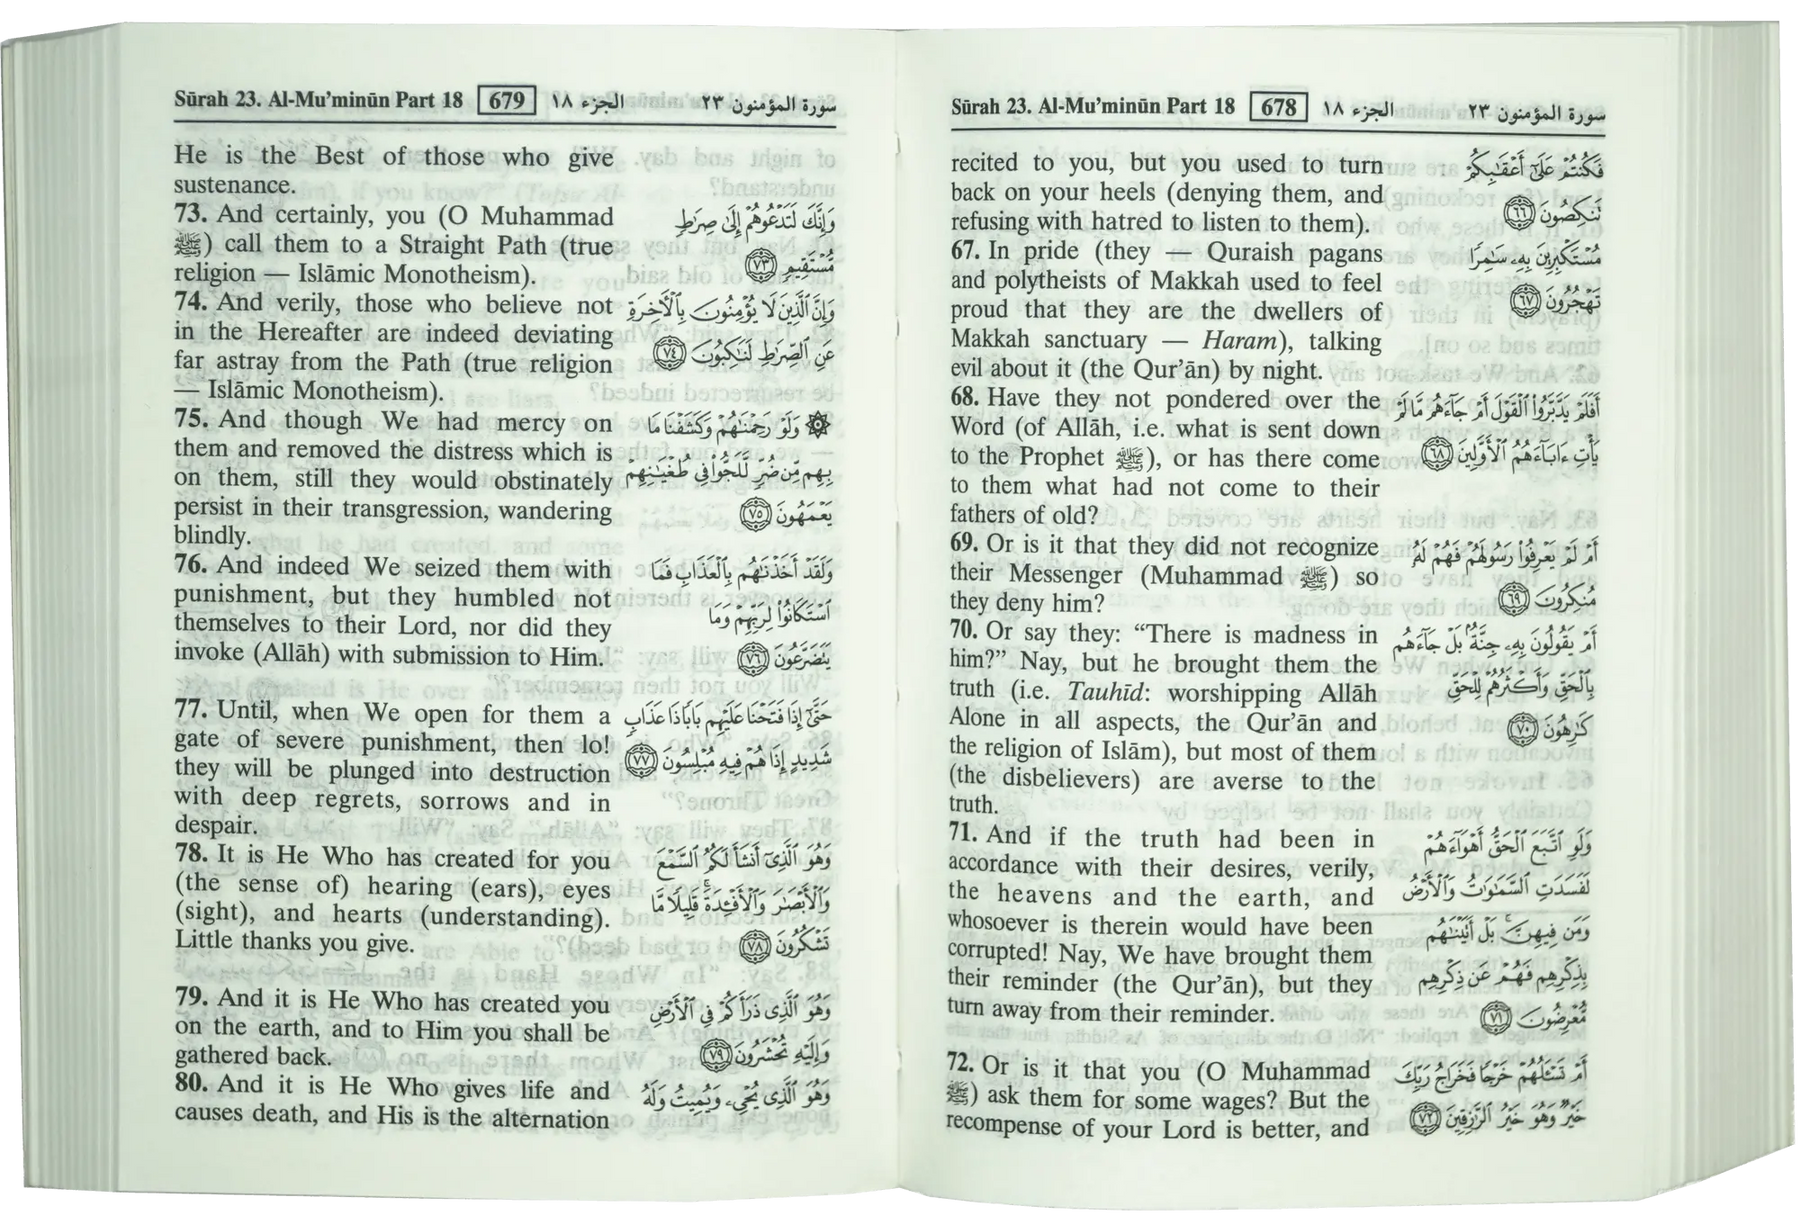 Sūrah 23. Al-Mu’minūn Part 18 678 الجزء ١٨ سورة المؤمنون ٢٣
recited to you, but you used to turn
back on your heels (denying them, and
refusing with hatred to listen to them).
فَكُنتُمْ عَلَىٰٓ أَعْقَـٰبِكُمْ
تَنكِصُونَ ٦٦
67. In pride (they — Quraish pagans
and polytheists of Makkah used to feel
proud that they are the dwellers of
Makkah sanctuary — Haram), talking
evil about it (the Qur’ān) by night.
مُسْتَكْبِرِينَ بِهِۦ سَـٰمِرًا
تَهْجُرُونَ ٦٧
68. Have they not pondered over the
Word (of Allāh, i.e. what is sent down
to the Prophet ﷺ), or has there come
to them what had not come to their
fathers of old?
أَفَلَمْ يَدَّبَّرُوا۟ ٱلْقَوْلَ أَمْ جَآءَهُم مَّا لَمْ
يَأْتِ ءَابَآءَهُمُ ٱلْأَوَّلِينَ ٦٨
69. Or is it that they did not recognize
their Messenger (Muhammad ﷺ) so
they deny him?
أَمْ لَمْ يَعْرِفُوا۟ رَسُولَهُمْ فَهُمْ لَهُۥ
مُنكِرُونَ ٦٩
70. Or say they: “There is madness in
him?” Nay, but he brought them the
truth (i.e. Tauhīd: worshipping Allāh
Alone in all aspects, the Qur’ān and
the religion of Islām), but most of them
(the disbelievers) are averse to the
truth.
أَمْ يَقُولُونَ بِهِۦ جِنَّةٌۢ ۚ بَلْ جَآءَهُم
بِٱلْحَقِّ وَأَكْثَرُهُمْ لِلْحَقِّ
كَـٰرِهُونَ ٧٠
71. And if the truth had been in
accordance with their desires, verily,
the heavens and the earth, and
whosoever is therein would have been
corrupted! Nay, We have brought them
their reminder (the Qur’ān), but they
turn away from their reminder.
وَلَوِ ٱتَّبَعَ ٱلْحَقُّ أَهْوَآءَهُمْ
لَفَسَدَتِ ٱلسَّمَـٰوَٰتُ وَٱلْأَرْضُ
وَمَن فِيهِنَّ ۚ بَلْ أَتَيْنَـٰهُم
بِذِكْرِهِمْ فَهُمْ عَن ذِكْرِهِم
مُّعْرِضُونَ ٧١
72. Or is it that you (O Muhammad
ﷺ) ask them for some wages? But the
recompense of your Lord is better, and
أَمْ تَسْـَٔلُهُمْ خَرْجًا فَخَرَاجُ رَبِّكَ
خَيْرٌ ۖ وَهُوَ خَيْرُ ٱلرَّٰزِقِينَ ٧٢
Sūrah 23. Al-Mu’minūn Part 18 679 الجزء ١٨ سورة المؤمنون ٢٣
He is the Best of those who give
sustenance.
73. And certainly, you (O Muhammad
ﷺ) call them to a Straight Path (true
religion — Islāmic Monotheism).
وَإِنَّكَ لَتَدْعُوهُمْ إِلَىٰ صِرَٰطٍ
مُّسْتَقِيمٍ ٧٣
74. And verily, those who believe not
in the Hereafter are indeed deviating
far astray from the Path (true religion
— Islāmic Monotheism).
وَإِنَّ ٱلَّذِينَ لَا يُؤْمِنُونَ بِٱلْـَٔاخِرَةِ
عَنِ ٱلصِّرَٰطِ لَنَـٰكِبُونَ ٧٤
75. And though We had mercy on
them and removed the distress which is
on them, still they would obstinately
persist in their transgression, wandering
blindly.
۞ وَلَوْ رَحِمْنَـٰهُمْ وَكَشَفْنَا مَا
بِهِم مِّن ضُرٍّ لَّلَجُّوا۟ فِى طُغْيَـٰنِهِمْ
يَعْمَهُونَ ٧٥
76. And indeed We seized them with
punishment, but they humbled not
themselves to their Lord, nor did they
invoke (Allāh) with submission to Him.
وَلَقَدْ أَخَذْنَـٰهُم بِٱلْعَذَابِ فَمَا
ٱسْتَكَانُوا۟ لِرَبِّهِمْ وَمَا
يَتَضَرَّعُونَ ٧٦
77. Until, when We open for them a
gate of severe punishment, then lo!
they will be plunged into destruction
with deep regrets, sorrows and in
despair.
حَتَّىٰٓ إِذَا فَتَحْنَا عَلَيْهِم بَابًا ذَا عَذَابٍ
شَدِيدٍ إِذَا هُمْ فِيهِ مُبْلِسُونَ ٧٧
78. It is He Who has created for you
(the sense of) hearing (ears), eyes
(sight), and hearts (understanding).
Little thanks you give.
وَهُوَ ٱلَّذِىٓ أَنشَأَ لَكُمُ ٱلسَّمْعَ
وَٱلْأَبْصَـٰرَ وَٱلْأَفْـِٔدَةَ ۚ قَلِيلًا مَّا
تَشْكُرُونَ ٧٨
79. And it is He Who has created you
on the earth, and to Him you shall be
gathered back.
وَهُوَ ٱلَّذِى ذَرَأَكُمْ فِى ٱلْأَرْضِ
وَإِلَيْهِ تُحْشَرُونَ ٧٩
80. And it is He Who gives life and
causes death, and His is the alternation
وَهُوَ ٱلَّذِى يُحْىِۦ وَيُمِيتُ وَلَهُ